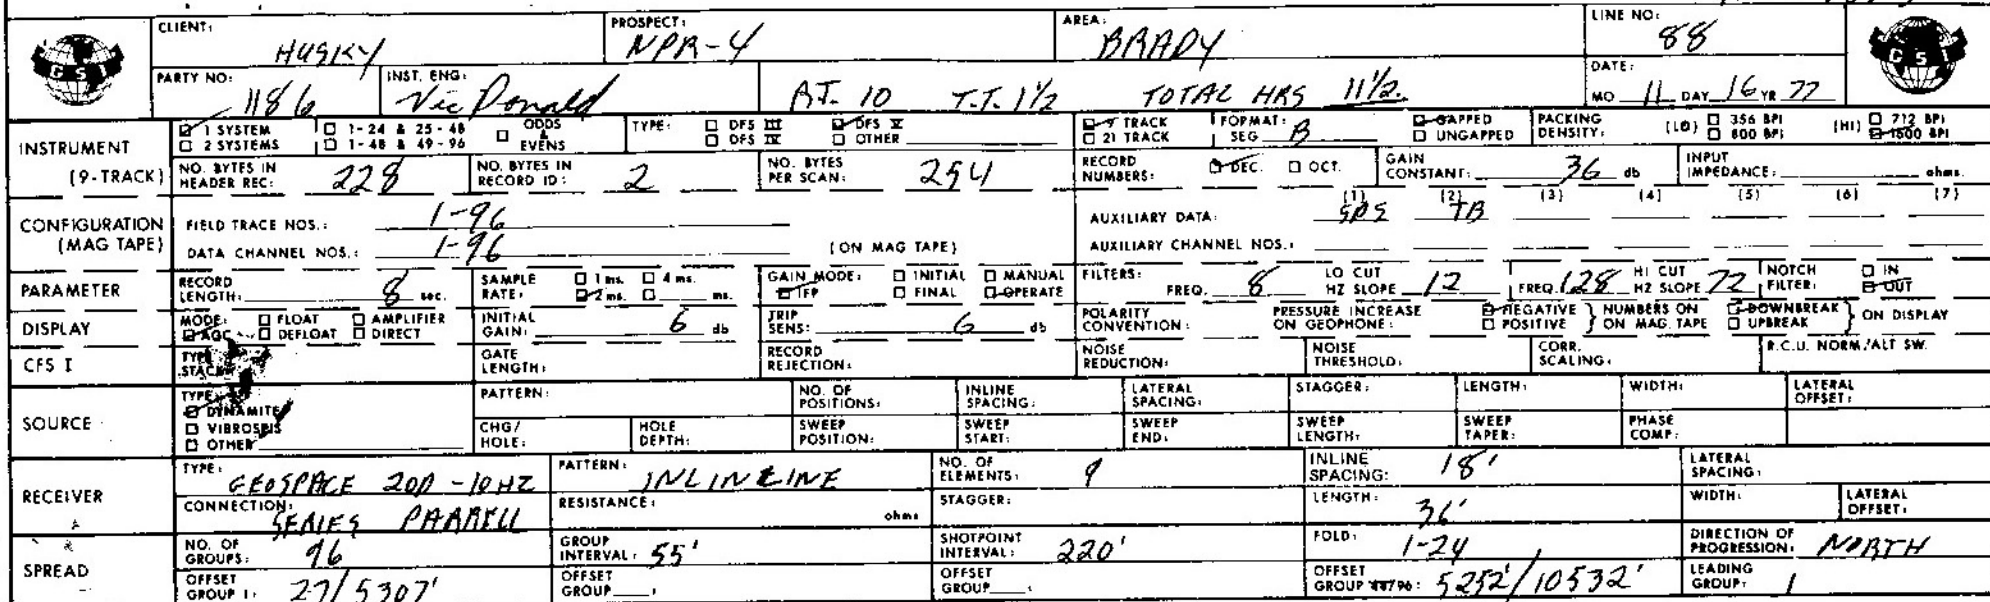 CLIENT: HUSKY PROSPECT: NPR-4 AREA: BRADY LINE NO: 88
GSI GSI
PARTY NO: 1186 INST. ENG: Vic Donald A.T. 10 T.T. 1 1/2 TOTAL HRS 11 1/2. DATE: MO 11 DAY 16 YR 77
INSTRUMENT (9-TRACK)
☑ 1 SYSTEM ☐ 1-24 & 25-48 ☐ ODDS & EVENS TYPE: ☐ DFS III ☑ DFS V ☑ 9 TRACK FORMAT: SEG B ☑ GAPPED PACKING DENSITY: (LO) ☐ 356 BPI (HI) ☐ 712 BPI
☐ 2 SYSTEMS ☐ 1-48 & 49-96 ☐ DFS IV ☐ OTHER ☐ 21 TRACK ☐ UNGAPPED ☐ 800 BPI ☑ 1600 BPI
NO. BYTES IN HEADER REC: 228 NO. BYTES IN RECORD ID: 2 NO. BYTES PER SCAN: 254 RECORD NUMBERS: ☑ DEC. ☐ OCT. GAIN CONSTANT: 36 db INPUT IMPEDANCE: ohms.
CONFIGURATION (MAG TAPE)
(1) (2) (3) (4) (5) (6) (7)
FIELD TRACE NOS.: 1-96 AUXILIARY DATA: TB
DATA CHANNEL NOS.: 1-96 (ON MAG TAPE) AUXILIARY CHANNEL NOS.:
PARAMETER
RECORD LENGTH: 8 sec. SAMPLE RATE: ☐ 1 ms. ☐ 4 ms. ☑ 2 ms. ☐ ms. GAIN MODE: ☐ INITIAL ☐ MANUAL ☑ IFP ☐ FINAL ☑ OPERATE FILTERS: FREQ. 8 LO CUT HZ SLOPE 12 FREQ. 128 HI CUT HZ SLOPE 72 NOTCH FILTER: ☐ IN ☑ OUT
DISPLAY
MODE: ☐ FLOAT ☐ AMPLIFIER ☑ AGC ☐ DEFLOAT ☐ DIRECT INITIAL GAIN: 6 db TRIP SENS: 6 db POLARITY CONVENTION: PRESSURE INCREASE ON GEOPHONE: ☑ NEGATIVE ☐ POSITIVE } NUMBERS ON MAG. TAPE ☑ DOWNBREAK ☐ UPBREAK } ON DISPLAY
CFS I
TYPE STACK: GATE LENGTH: RECORD REJECTION: NOISE REDUCTION: NOISE THRESHOLD: CORR. SCALING: R.C.U. NORM./ALT SW.
SOURCE
TYPE: ☑ DYNAMITE ☐ VIBROSEIS ☐ OTHER
PATTERN: NO. OF POSITIONS: INLINE SPACING: LATERAL SPACING: STAGGER: LENGTH: WIDTH: LATERAL OFFSET:
CHG/HOLE: HOLE DEPTH: SWEEP POSITION: SWEEP START: SWEEP END: SWEEP LENGTH: SWEEP TAPER: PHASE COMP:
RECEIVER
TYPE: GEOSPACE 20D -10HZ PATTERN: INLINELINE NO. OF ELEMENTS: 9 INLINE SPACING: 18' LATERAL SPACING:
CONNECTION: SERIES PARRELL RESISTANCE: ohms STAGGER: LENGTH: 36' WIDTH: LATERAL OFFSET:
SPREAD
NO. OF GROUPS: 96 GROUP INTERVAL: 55' SHOTPOINT INTERVAL: 220' FOLD: 1-24 DIRECTION OF PROGRESSION: NORTH
OFFSET GROUP 1: 27/5307' OFFSET GROUP : OFFSET GROUP : OFFSET GROUP 48/96: 5252'/10532' LEADING GROUP: 1